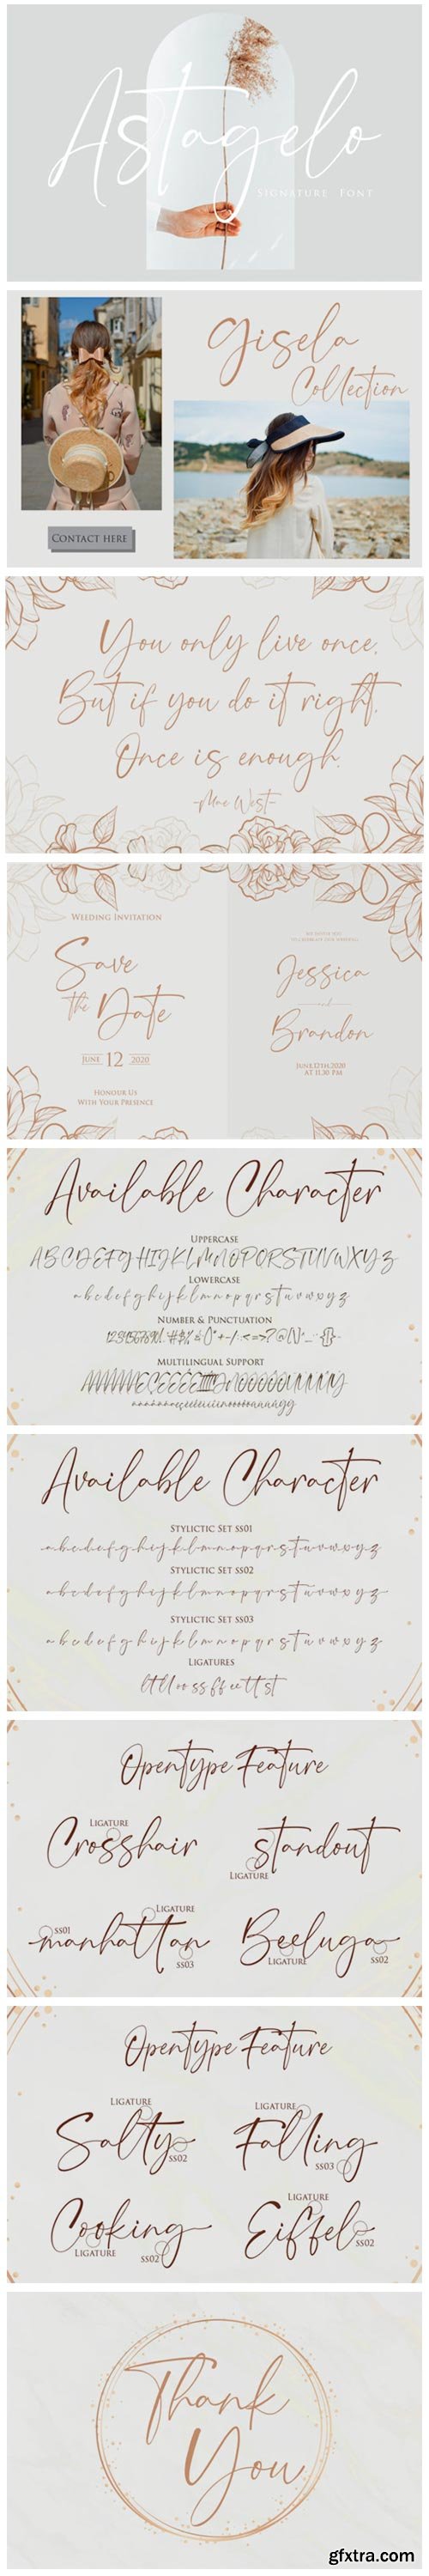 Astagelo
Signature Font
Gisela
Collection
Contact here
You only live once,
But if you do it right,
Once is enough.
-Mae West-
Wedding Invitation
Save
the Date
June 12 2020
Honour Us
With Your Presence
Jessica
and
Brandon
June,12th,2020
at 11.30 PM
Available Character
Uppercase
A B C D E F G H I J K L M N O P Q R S T U V W X Y Z
Lowercase
a b c d e f g h i j k l m n o p q r s t u v w x y z
Number & Punctuation
Multilingual Support
Available Character
Stylictic Set SS01
a b c d e f g h i j k l m n o p q r s t u v w x y z
Stylictic Set SS02
a b c d e f g h i j k l m n o p q r s t u v w x y z
Stylictic Set SS03
a b c d e f g h i j k l m n o p q r s t u v w x y z
Ligatures
Opentype Feature
Ligature
Crosshair
standout
Ligature
Ligature
SS01
manhattan
SS03
Beeluga
Ligature
SS02
Opentype Feature
Ligature
Salty
SS02
Ligature
Falling
SS03
Cooking
Ligature
SS02
Ligature
Eiffel
SS02
Thank
You
gfxtra.com